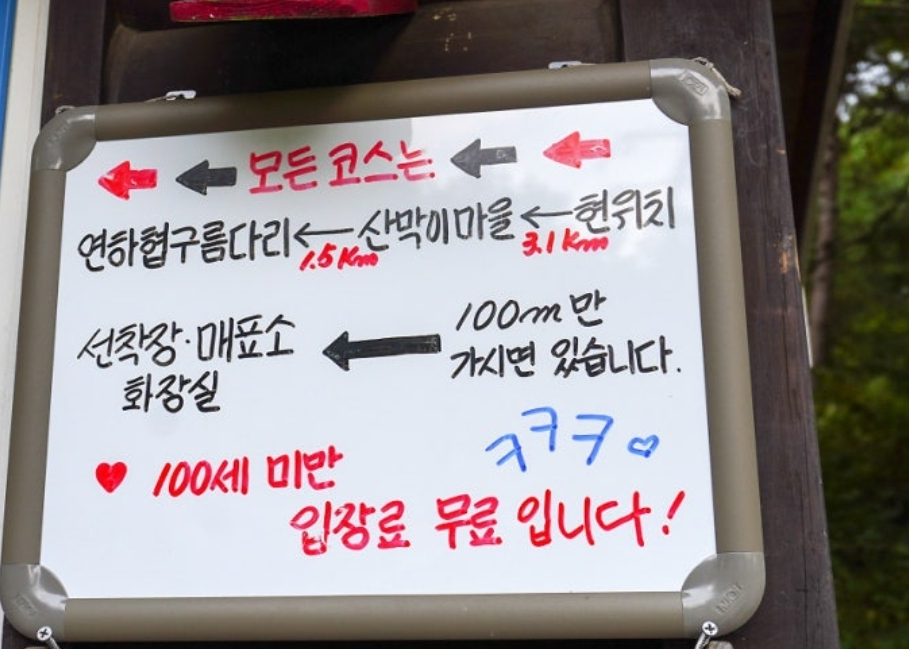 ← ← 모든 코스는 ← ←
연하협구름다리 ← 산막이마을 ← 현위치
1.5 Km 3.1 Km
100m 만
선착장·매표소 ← 가시면 있습니다.
화장실
ㅋㅋㅋ ♡
♥ 100세 미만
입장료 무료 입니다!